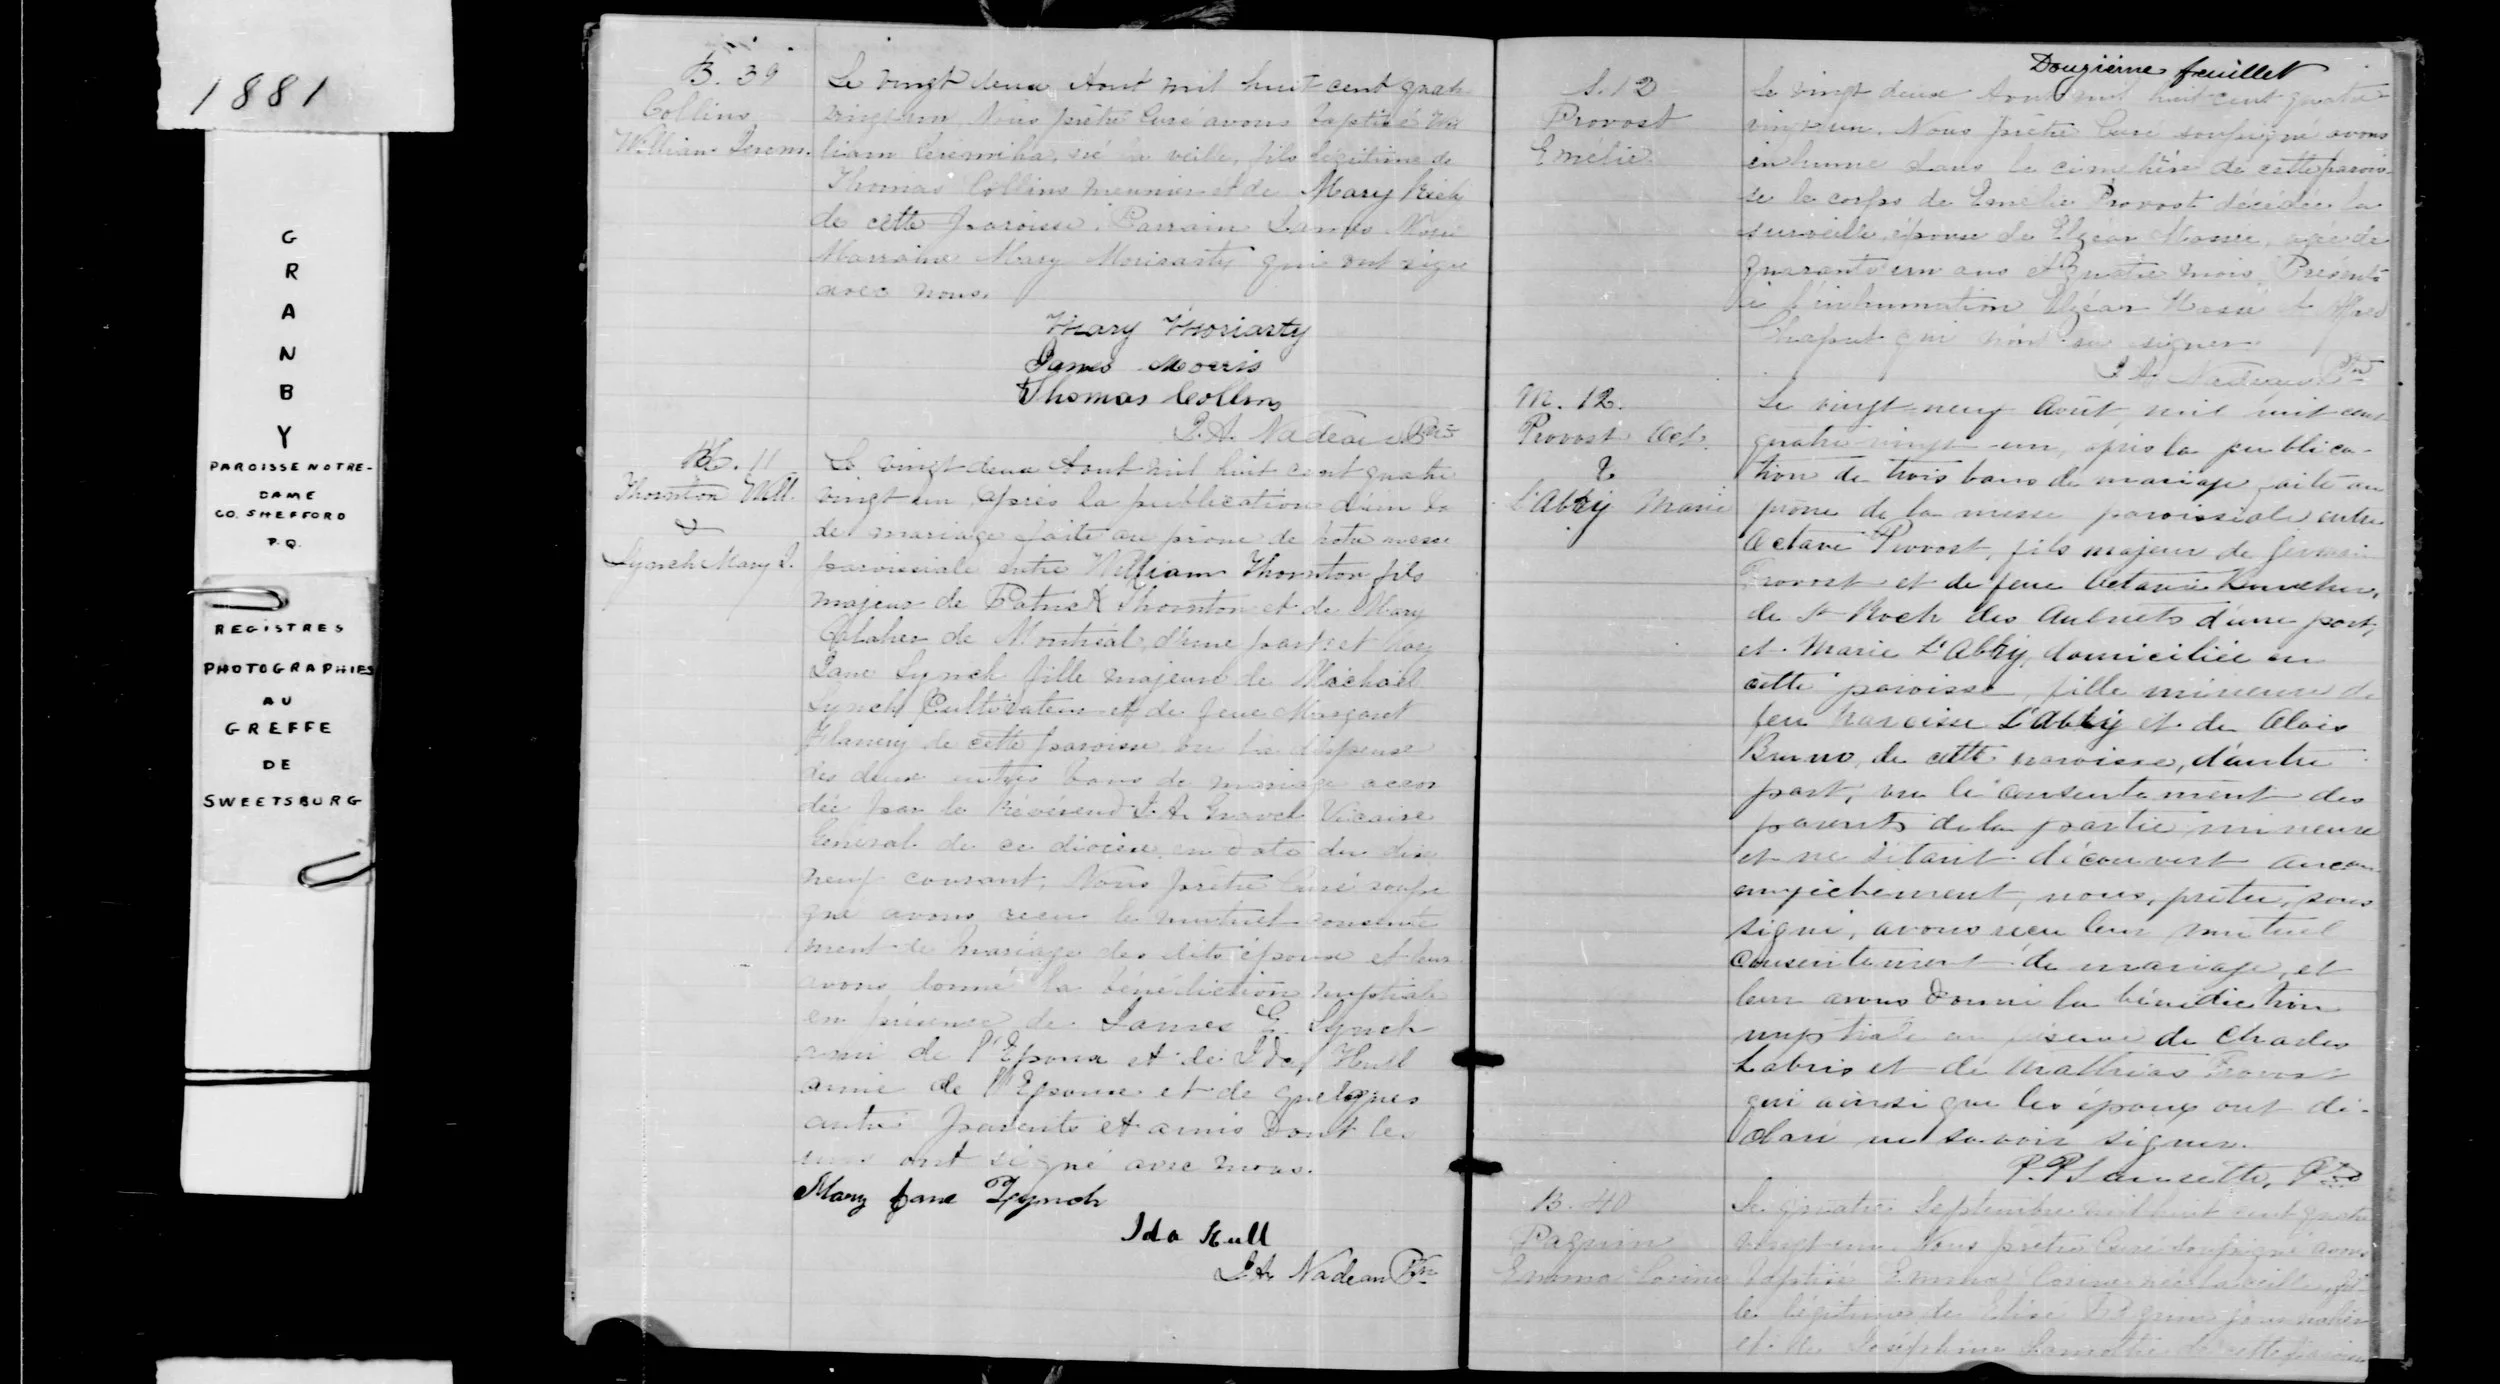 1881
G
R
A
N
B
Y
PAROISSE NOTRE-
DAME
CO. SHEFFORD
P.Q.
REGISTRES
PHOTOGRAPHIES
AU
GREFFE
DE
SWEETSBURG
B. 39
Collins
William Jerem.
Le vingt deux Aout mil huit cent quatre
vingt un Nous prêtre Curé avons baptisé Wil
liam Jeremiha, né la veille, fils légitime de
Thomas Collins meunier et de Mary
de cette paroisse. Parrain James
Marraine Mary Moriarty qui ont signé
avec nous.
Mary Moriarty
James Morris
Thomas Collins
J.A. Nadeau Ptre
M. 11
Thornton Will.
&
Lynch Mary J.
Le vingt deux Aout mil huit cent quatre
vingt un, après la publication d'un ban
de mariage faite au prône de notre messe
paroissiale entre William Thornton fils
majeur de Patrick Thornton et de Mary
de Montréal, d'une part et Mary
Jane Lynch fille majeure de Michael
Lynch Cultivateur et de feue Margaret
Flanery de cette paroisse vu la dispense
des deux autres bans de mariage accor
dée par le Révérend J. A. Gravel Vicaire
Général de ce diocèse en date du dix
neuf courant, Nous prêtre Curé soussi
gné avons reçu le mutuel consente
ment de mariage des dits époux et leur
avons donné la bénédiction nuptiale
en présence de James E. Lynch
ami de l'Epoux et de Ida Hull
amie de l'Epouse et de quelques
autres parents et amis dont les
uns ont signé avec nous.
Mary Jane Lynch
Ida Hull
J.A. Nadeau Ptre
Douzième feuillet
S. 12
Provost
Emélie
Le vingt deux Aout mil huit cent quatre
vingt un. Nous prêtre Curé soussigné avons
inhumé dans le cimetière de cette parois
se le corps de Emélie Provost décédée la
surveille, épouse de Elzéar Masse, agée de
quarante un ans et quatre mois. Présents
à l'inhumation Elzéar Masse et Alfred
Chaput qui n'ont su signer.
J A Nadeau Ptre
M. 12.
Provost Oct.
&
L'Abbé Marie
Le vingt-neuf Août, mil huit cent
quatre vingt-un, après la publica-
tion de trois bans de mariage faite au
prône de la messe paroissiale entre
Octave Provost, fils majeur de Germain
Provost et de feue Octavie
de St Roch des Aulnets d'une part,
et Marie L'Abbé, domiciliée en
cette paroisse, fille mineure de
feu Narcisse L'Abbé et de
de cette paroisse, d'autre
part, vu le consentement des
parents de la partie mineure
et ne s'étant découvert aucun
empêchement, nous, prêtre, sous
signé, avons reçu leur mutuel
consentement de mariage, et
leur avons donné la bénédiction
nuptiale en présence de Charles
Labrie et de Mathias Provost
qui ainsi que les époux ont dé-
claré ne savoir signer.
Ptre
B. 40
Paquin
Emma Corine
Le quatre Septembre mil huit cent quatre
vingt-un. Nous prêtre Curé soussigné avons
baptisé Emma Corine née la veille, fil
le légitime de Elisé Paquin journalier
et de Joséphine Lamothe de cette paroisse